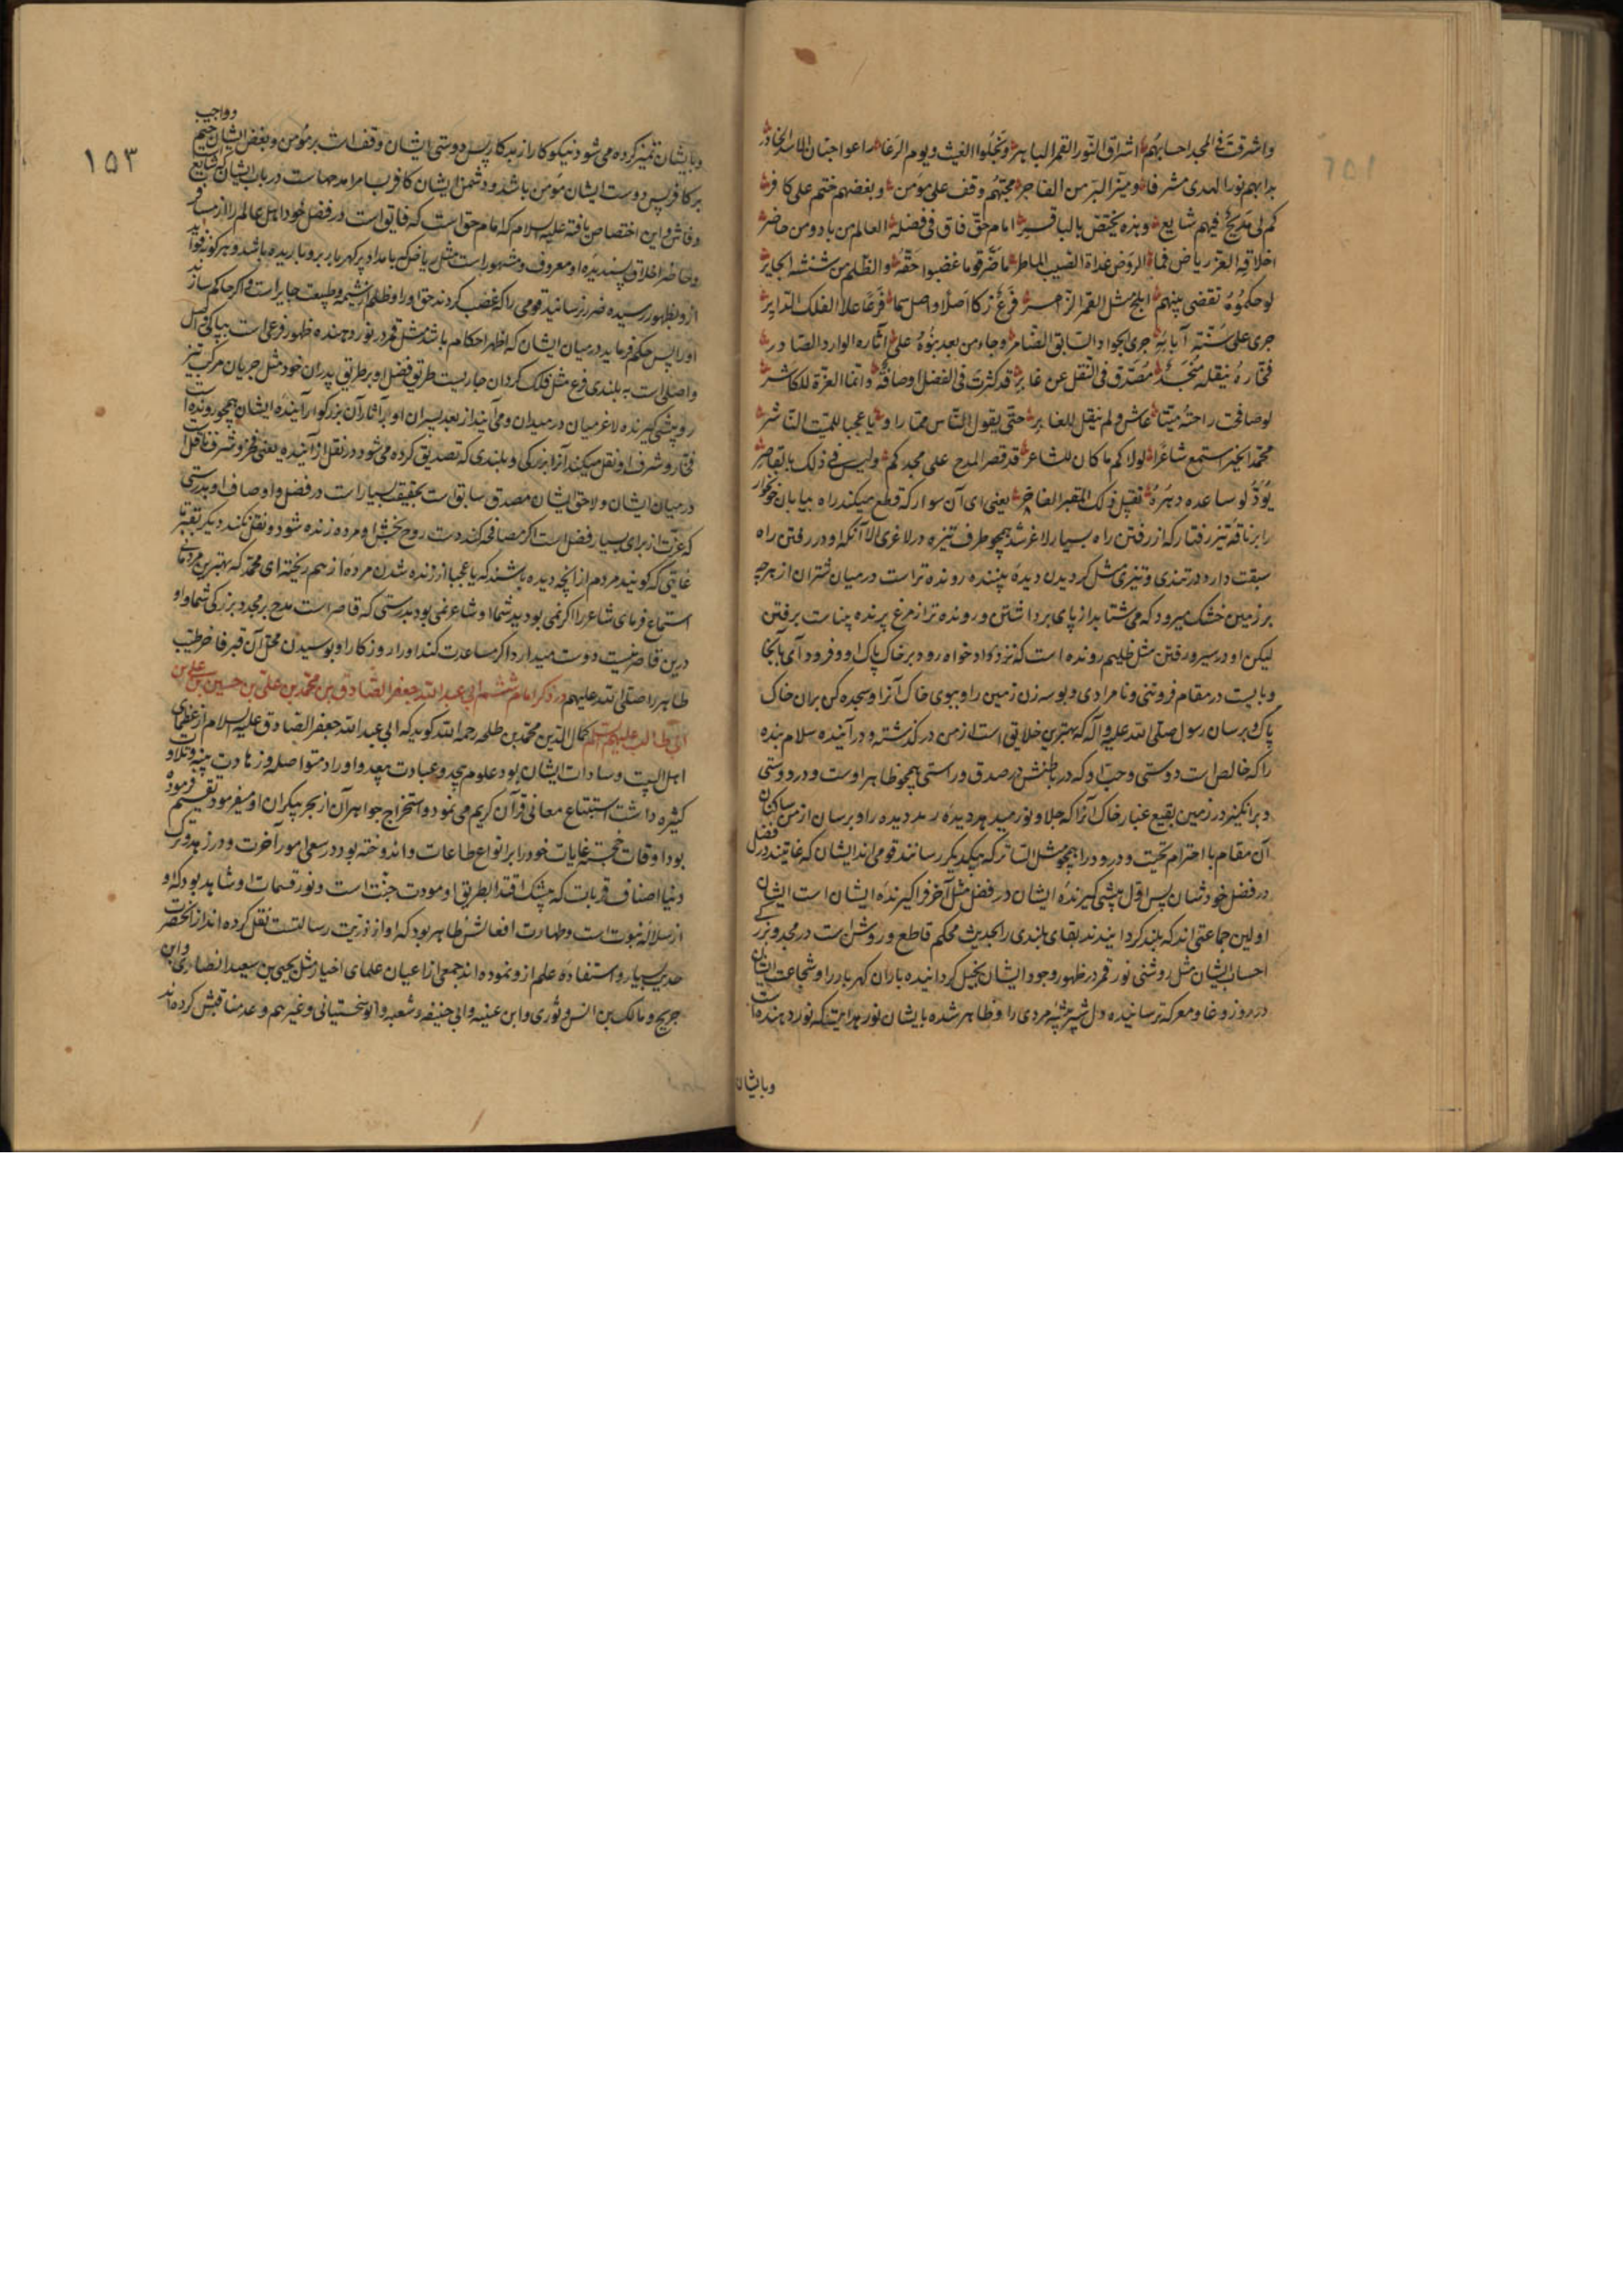 واشرقت فی المجد احسابهم اشراق النور القمر الباهر وبخلوا الغیث ویوم الوغا راعوا جنان الاسد الخادر
بدا بهم نور الهدی مشرفا ومیز البر من الفاجر محبتهم وقف علی مؤمن وبغضهم ختم علی کافر
کم لی مدیح فیهم شایع وهذه یختص بالباقر امام حق فاق فی فضله العالم من باد ومن حاضر
اخلاقه الغر ریاض فما الروض غداة الصیب الماطر ما ضر قوما غضبوا حقه والظلم من شنشنة الجایر
لو حکموه فقضی بینهم ابلج مثل القمر الزاهر فرع زکا اصلا واصل سما فرعا علا الفلک الدایر
جری علی سنة آبائه جری الجواد السابق الضامر وجاء من بعد بنوه علی آثاره الوارد الصادر
فخاره ینقله منجد مصدق فی النقل عن غایر قد کثرت فی الفضل اوصافه وانما العزة للکاثر
لو صافحت راحته میتا عاش ولم ینقل للغابر حتی یقول الناس مما راوا یا عجبا للمیت الناشر
محمد الخیر استمع شاعرا لولاکم ما کان للشاعر قد قصر المدح علی مجدکم ولیس فی ذلک بالقاصر
یود لو ساعده دهره تقبیل ذلک المقبر الفاخر یعنی ای آن سوار که قطع میکند راه بیابان خونخوار
را بر ناقه تیز رفتار که از رفتن راه بسیار لاغر شد همچو طرف نیزه در لاغری الا آنکه او در رفتن راه
سبقت دارد در تندی وتیزی مثل کردیدن دیده بیننده رونده تر است در میان شتران از هرچه
بر زمین خشک میرود که می شتابد از پای برداشتن ورونده تر از مرغ پرنده بیناست برفتن
لیکن او در سیر ورفتن مثل ظلیم رونده است که نزد کواد خواه رود بر خاک پاک او وفرود آی بآنجا
وبایست در مقام فروتنی ونامرادی وبوسه زن زمین را وببوی خاک آنرا وسجده کن بران خاک
پاک وبرسان رسول صلی الله علیه وآله که بهترین خلایق است از من در گذشته ودر آینده سلام بنده
را که خالص است دوستی وحب او که در باطنش در صدق وراستی همچو ظاهر اوست ودر دوستی
وبرانگیز در زمین بقیع غبار خاک آنرا که جلا ونور میدهد دیده رمد دیده را وبرسان از من ساکنان
آن مقام با احترام تحیت ودرود را همچو مثل السائر که بیکدیگر رسانند قومی اند ایشان که غایتند در فضل
در فضل خودشان پس اول پیشی گیرنده ایشان در فضل مثل آخر فراگیرنده ایشان است ایشان
اولین جماعتی اند که بلند کردانیدند بقای بلندی را بحدیث محکم قاطع وروشن است در مجد وبزرگی
احساب ایشان مثل روشنی نور قمر در ظهور وجود ایشان بخیل کردانیده باران گهربار را وشجاعت ایشان
در روز وغا ومعرکه ترسانیده دل شیر بیشه مردی را وظاهر شده بایشان نور هدایت که نور دهنده است
وبایشان
۱۵۳
وواجب
وبایشان تمیز کرده می شود نیکوکار از بدکار پس دوستی ایشان وقف است بر مؤمن وبغض ایشان ختم
بر کافر پس دوست ایشان مؤمن باشد ودشمن ایشان کافر بسا مرا مدحهاست در باب ایشان که شایع
وفاش واین اختصاص یافته علیه السلام که امام حق است که فایق است در فضل خود اهل عالم را از مسافر
وحاضر اخلاق پسندیده او معروف ومشهور است مثل ریاض که بامداد پر گهربار برو باریده باشد وهرگونه فواید
ازو بظهور رسیده ضرر نرسانید قومی را که غصب کردند حق او را وظلم از شیمه وطبیعت جایر است واگر حاکم سازند
او را پس حکم فرماید در میان ایشان که اظهر احکام باشد مثل قمر در نور دهنده ظهور فرعی است بپاکی اصل
واصلی است به بلندی فرع مثل فلک گردان جاریست طریق فضل او بر طریق پدران خود مثل جریان مرکب تیز
رو پیشی گیرنده لاغر میان در میدان ومی آیند از بعد پسران او بر آثار آن بزرگوار آینده ایشان همچو رونده است
فخار وشرف او نقل میکنند آنرا بزرگی وبلندی که تصدیق کرده می شود در نقل از آینده یعنی فخر وشرف ناقل است
در میان ایشان ولاحق ایشان مصدق سابق است بتحقیق بسیار است در فضل واوصاف او بدرستی
که عزت از برای بسیار فضل است اگر مصافحه کند دست روح بخش او مرده زنده شود ونقل نکند دیگر بقبر تا
غایتی که گویند مردم از آنچه دیده باشند که یا عجبا از زنده شدن مرده از هم ریخته ای محمد که بهترین مردمانی
استماع فرمای شاعر را اگر نمی بودید شما او شاعر نمی بود بدرستی که قاصر است مدح بر مجد وبزرگی شما واو
درین قاصر نیست دوست میدارد اگر مساعدت کند او را روزگار او بوسیدن محل آن قبر فاخر طیب
طاهر را صلی الله علیهم در ذکر امام ششم ابی عبد الله جعفر الصادق بن محمد بن علی بن حسین بن علی بن
ابی طالب علیهم السلام کمال الدین محمد بن طلحه رحمه الله گوید که ابی عبد الله جعفر الصادق علیه السلام از عظمای
اهل البیت وسادات ایشان بود علوم بیحد وعبادت بیعد واوراد متواصله وزهادت بینه وتلاوت
کثیره داشت استتباع معانی قرآن کریم می نمود واستخراج جواهر آن از بحر بیکران او میفرمود تقسیم فرموده
بود اوقات خجسته غایات خود را بر انواع طاعات واندوخته بود در سعی امور آخرت ودر زهد وترک
دنیا اصناف قربات که بیشک اقتدا بطریق او مودت جنت است ونور قسمات او شاهد بود که او
از سلاله نبوت است وطهارت افعالش ظاهر بود که او از ذریت رسالتست نقل کرده اند از آنحضرت
حدیث بسیار واستفاده علم ازو نموده اند جمعی از اعیان علمای اخیار مثل یحیی بن سعید انصاری وابن
جریج ومالک بن انس وثوری وابن عنیه وابی حنیفه وشعبه وابو سختیانی وغیرهم وعد مناقبش کرده اند